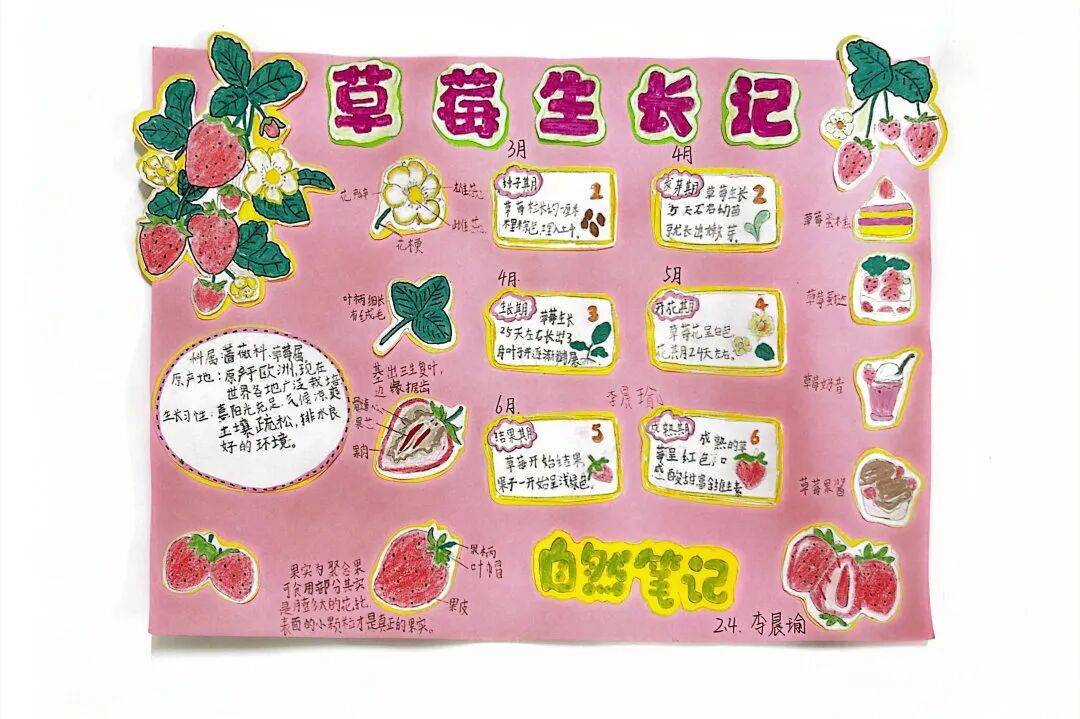 草莓生长记
花瓣
雄蕊
雌蕊
花梗
叶柄细长
有绒毛
基出三生复叶,
边 锯齿
科属:蔷薇科.草莓属.
原产地:原产于欧洲,现在
世界各地广泛栽培
生长习性:喜阳光充足.气候凉爽
土壤疏松,排水良
好的环境。
果肉
果实为聚合果
可食用部分其实
是膨大的花托
表面的小颗粒才是真正的果实。
果柄
叶帽
果皮
3月
种子期
1
4月
发芽期
草莓生长
2
15天左右幼苗
就长出嫩芽.
4月.
生长期
草莓生长
3
25天左右长出3
5月
开花期
4
草莓花呈白色
花期24天左右.
李晨瑜
6月.
结果期
5
草莓开始结果,
果子一开始呈浅绿色.
成熟期
6
成熟的草
莓呈红色,口
草莓蛋糕
草莓蛋挞
草莓奶昔
草莓果酱
自然笔记
2.4. 李晨瑜